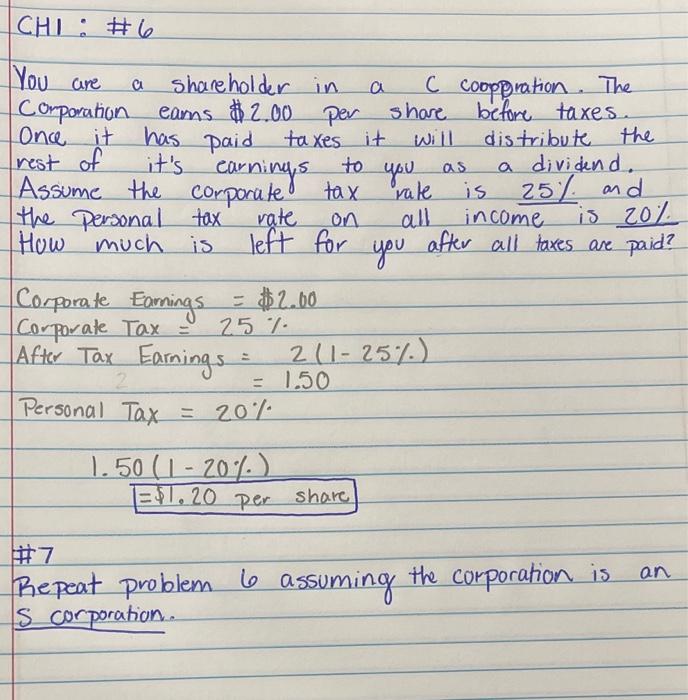 CH1 : #6
You are a shareholder in a C coopporation. The
Corporation earns $2.00 per share before taxes.
Once it has paid taxes it will distribute the
rest of it's earnings to you as a dividend.
Assume the corporate tax rate is 25% and
the personal tax rate on all income is 20%.
How much is left for you after all taxes are paid?
Corporate Earnings = $2.00
Corporate Tax = 25%
After Tax Earnings = 2(1-25%)
= 1.50
Personal Tax = 20%
1.50(1-20%)
=$1.20 per share
#7
Repeat problem 6 assuming the corporation is an
S corporation.